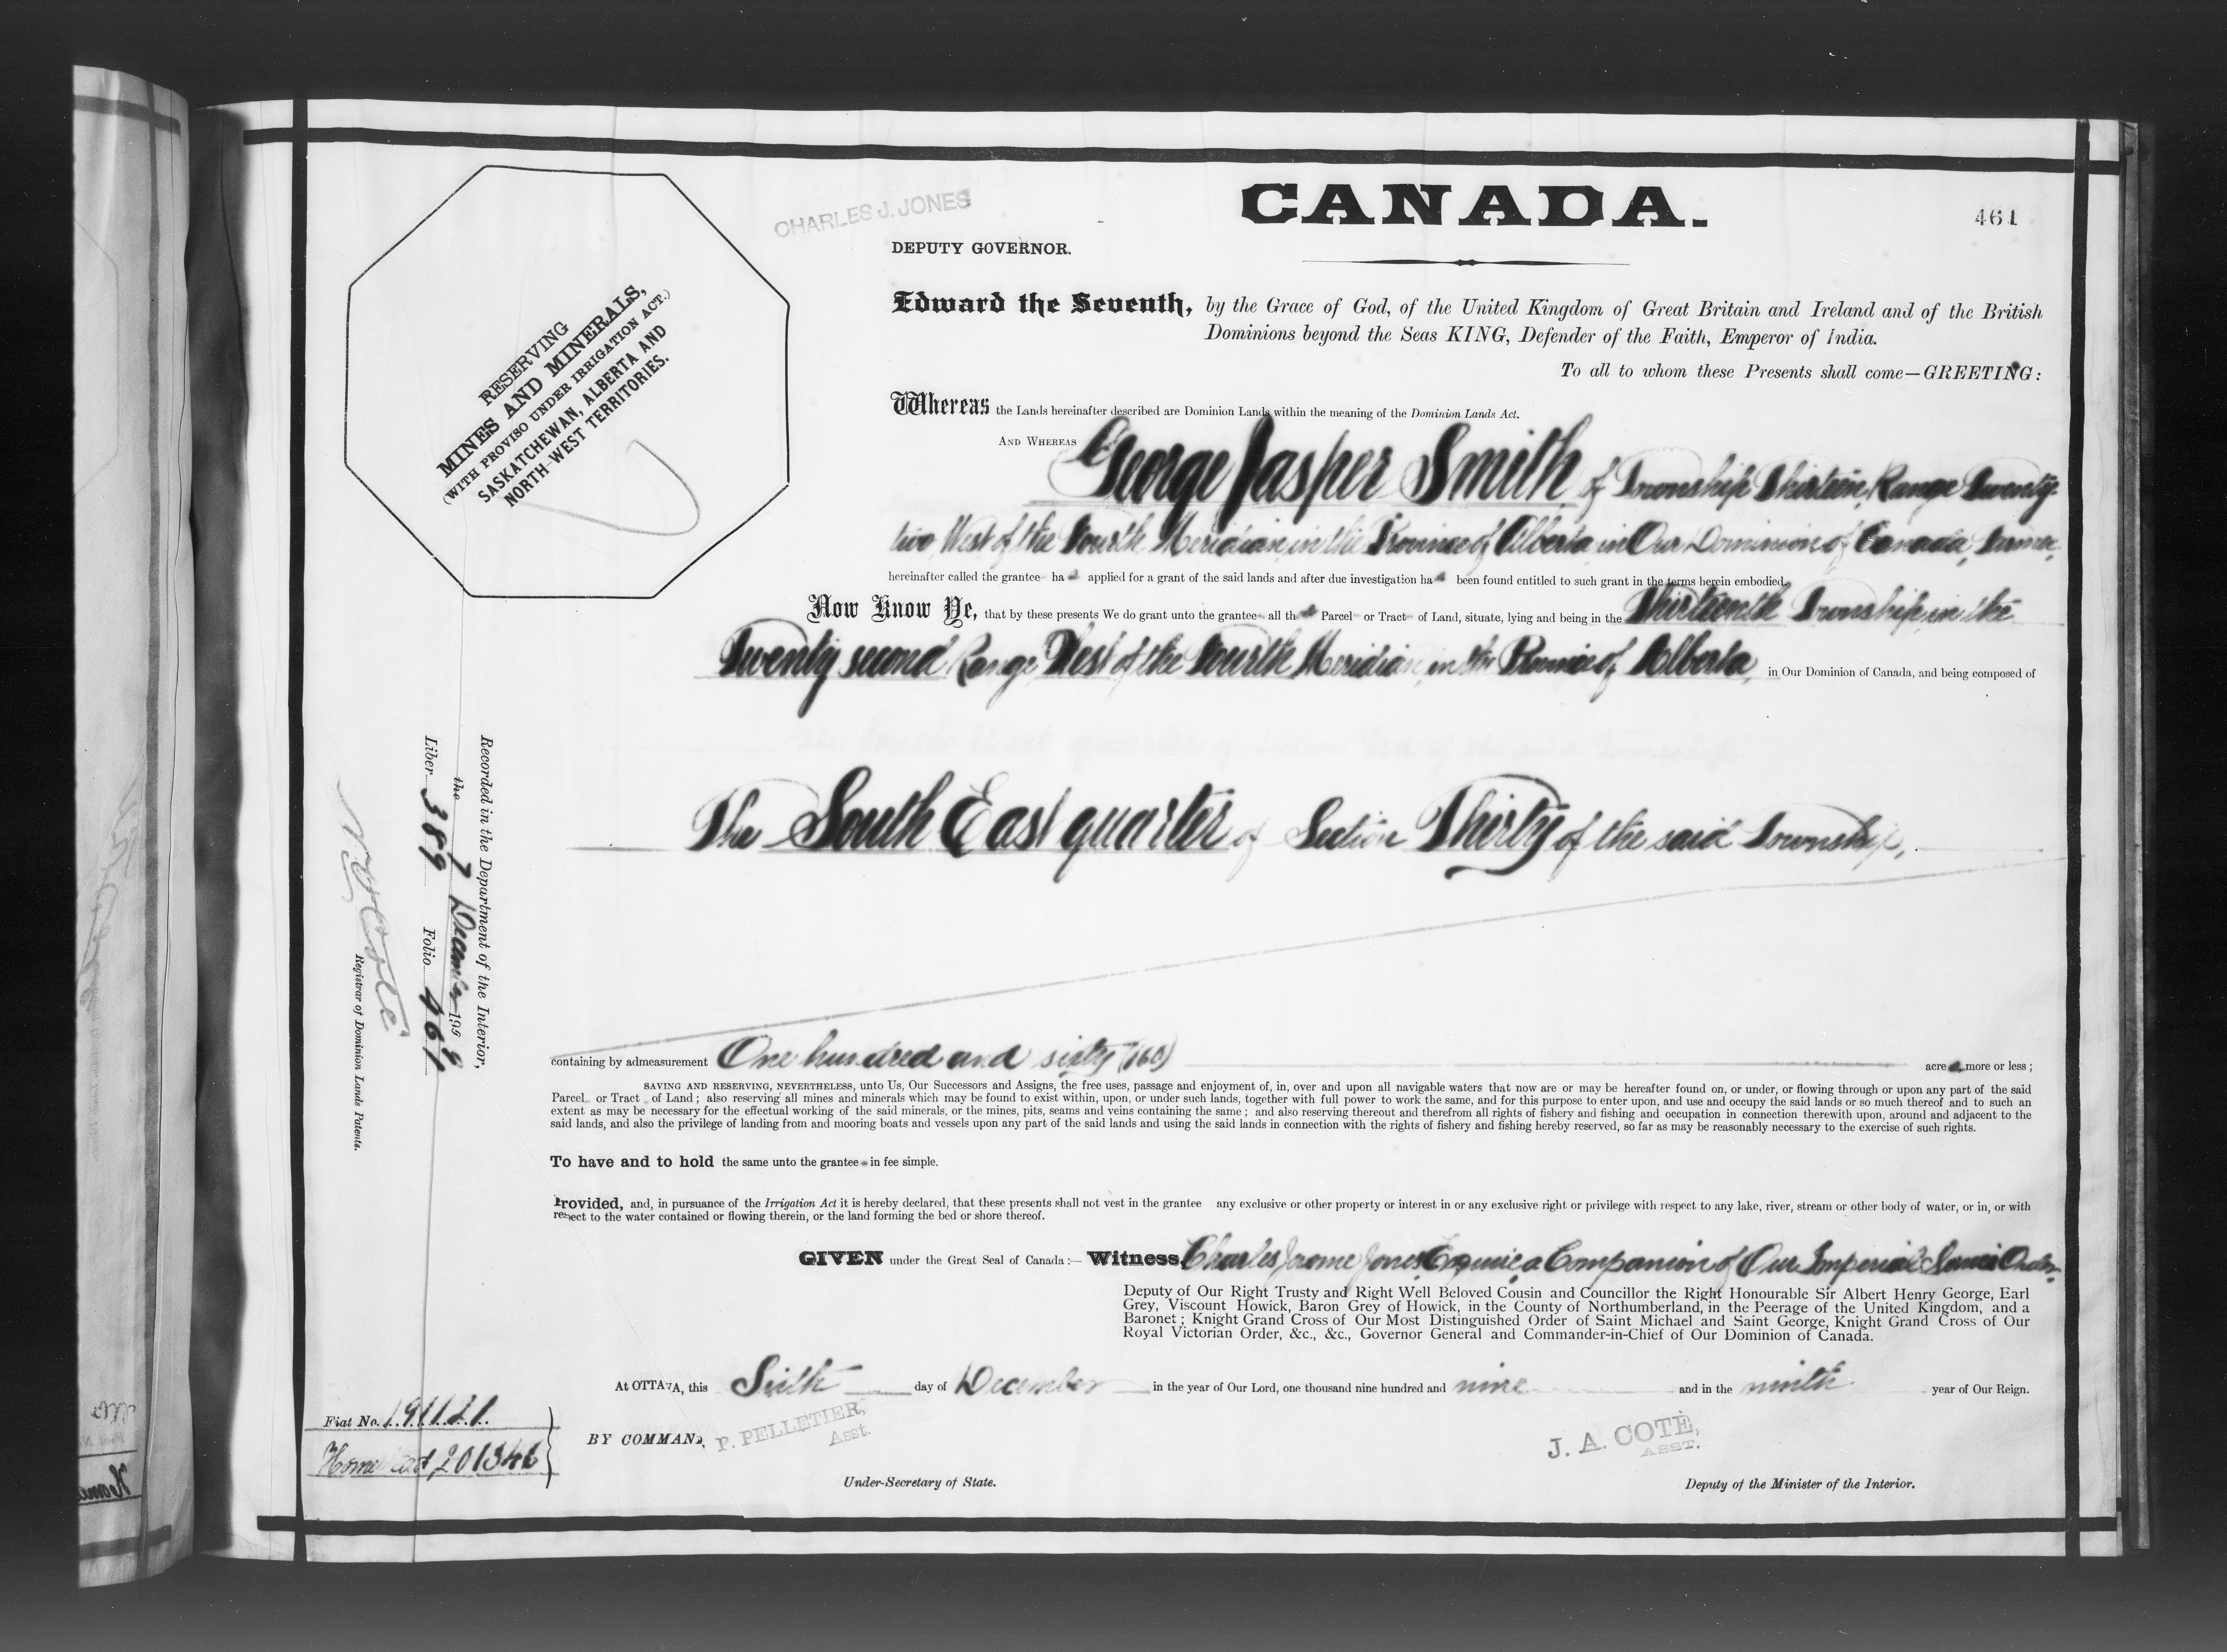 CANADA.
461
CHARLES J. JONES
DEPUTY GOVERNOR.
RESERVING
MINES AND MINERALS,
(WITH PROVISO UNDER IRRIGATION ACT.)
SASKATCHEWAN, ALBERTA AND
NORTH-WEST TERRITORIES.
Edward the Seventh, by the Grace of God, of the United Kingdom of Great Britain and Ireland and of the British
Dominions beyond the Seas KING, Defender of the Faith, Emperor of India.
To all to whom these Presents shall come—GREETING:
Whereas the Lands hereinafter described are Dominion Lands within the meaning of the Dominion Lands Act.
AND WHEREAS George Jasper Smith of Township Thirteen, Range Twenty-
two West of the Fourth Meridian, in the Province of Alberta, in Our Dominion of Canada, Farmer,
hereinafter called the grantee has applied for a grant of the said lands and after due investigation has been found entitled to such grant in the terms herein embodied.
Now Know Ye, that by these presents We do grant unto the grantee all that Parcel or Tract of Land, situate, lying and being in the Thirteenth Township, in the
Twenty second Range West of the Fourth Meridian, in the Province of Alberta, in Our Dominion of Canada, and being composed of
The South East quarter of Section Thirty of the said Township,
containing by admeasurement One hundred and sixty (160) acres more or less;
SAVING AND RESERVING, NEVERTHELESS, unto Us, Our Successors and Assigns, the free uses, passage and enjoyment of, in, over and upon all navigable waters that now are or may be hereafter found on, or under, or flowing through or upon any part of the said
Parcel or Tract of Land; also reserving all mines and minerals which may be found to exist within, upon, or under such lands, together with full power to work the same, and for this purpose to enter upon, and use and occupy the said lands or so much thereof and to such an
extent as may be necessary for the effectual working of the said minerals, or the mines, pits, seams and veins containing the same; and also reserving thereout and therefrom all rights of fishery and fishing and occupation in connection therewith upon, around and adjacent to the
said lands, and also the privilege of landing from and mooring boats and vessels upon any part of the said lands and using the said lands in connection with the rights of fishery and fishing hereby reserved, so far as may be reasonably necessary to the exercise of such rights.
To have and to hold the same unto the grantee in fee simple.
Provided, and, in pursuance of the Irrigation Act it is hereby declared, that these presents shall not vest in the grantee any exclusive or other property or interest in or any exclusive right or privilege with respect to any lake, river, stream or other body of water, or in, or with
respect to the water contained or flowing therein, or the land forming the bed or shore thereof.
GIVEN under the Great Seal of Canada:— Witness, Charles Jerome Jones Esquire a Companion of Our Imperial Service Order,
Deputy of Our Right Trusty and Right Well Beloved Cousin and Councillor the Right Honourable Sir Albert Henry George, Earl
Grey, Viscount Howick, Baron Grey of Howick, in the County of Northumberland, in the Peerage of the United Kingdom, and a
Baronet; Knight Grand Cross of Our Most Distinguished Order of Saint Michael and Saint George, Knight Grand Cross of Our
Royal Victorian Order, &c., &c., Governor General and Commander-in-Chief of Our Dominion of Canada.
At OTTAWA, this Sixth day of December in the year of Our Lord, one thousand nine hundred and nine and in the ninth year of Our Reign.
BY COMMAND, P. PELLETIER,
Asst.
Under-Secretary of State.
J. A. COTÉ,
ASST.
Deputy of the Minister of the Interior.
Fiat No. 191121
Homestead 201346
Recorded in the Department of the Interior,
the 7 December 1909
Liber 389 Folio 461
N O Coté
Registrar of Dominion Lands Patents.